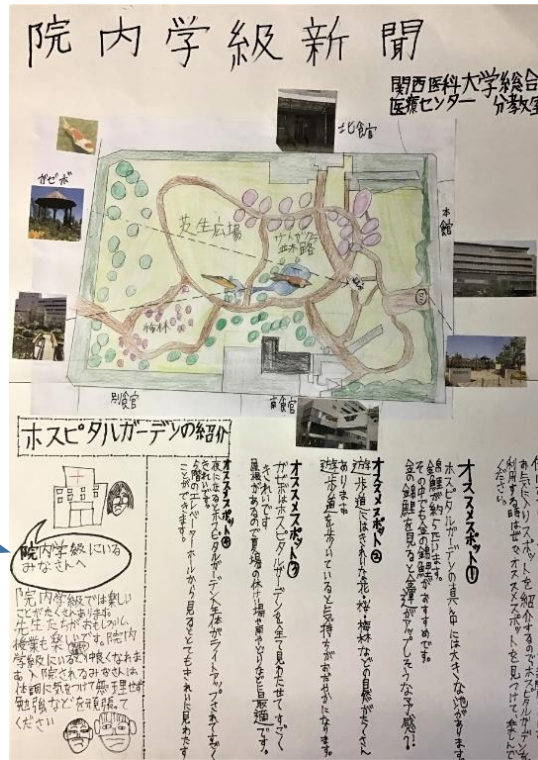 院内学級新聞
関西医科大学総合
医療センター 分教室
北館
ガゼボ
本館
芝生広場
並木路
梅林
別館
南館
ホスピタルガーデンの紹介
お気に入りスポットを紹介するのでホスピタルガーデンを
利用する時はぜひオススメスポットを見つけて楽しんで
ください。
オススメスポット①
ホスピタルガーデンの真ん中には大きな池があります。
錦鯉が約
その中でも金の錦鯉がおすすめです。
金の錦鯉を見ると金運がアップしそうな予感?
オススメスポット②
遊歩道にはきれいな花・桜・梅林などの自然がたくさん
あります。
遊歩道を歩いていると気持ちがおだやかになります。
オススメスポット③
ガゼボはホスピタルガーデンを全て見わたせてすごく
きれいです。
屋根があるので夏場の休け場や雨やどりなどに最適です。
オススメスポット④
夜になるとホスピタルガーデン全体がライトアップされてすごく
きれいです。
階のエレベーターホールから見るととてもきれいに見わたす
ことができます。
院内学級にいる
みなさんへ
院内学級では楽しい
ことがたくさんあります。
先生たちがおもしろいし
授業も楽しいです。院内
学級にいると仲良くなれます
入院されるみなさんは
体調に気をつけて無理せず
勉強などを頑張って
ください